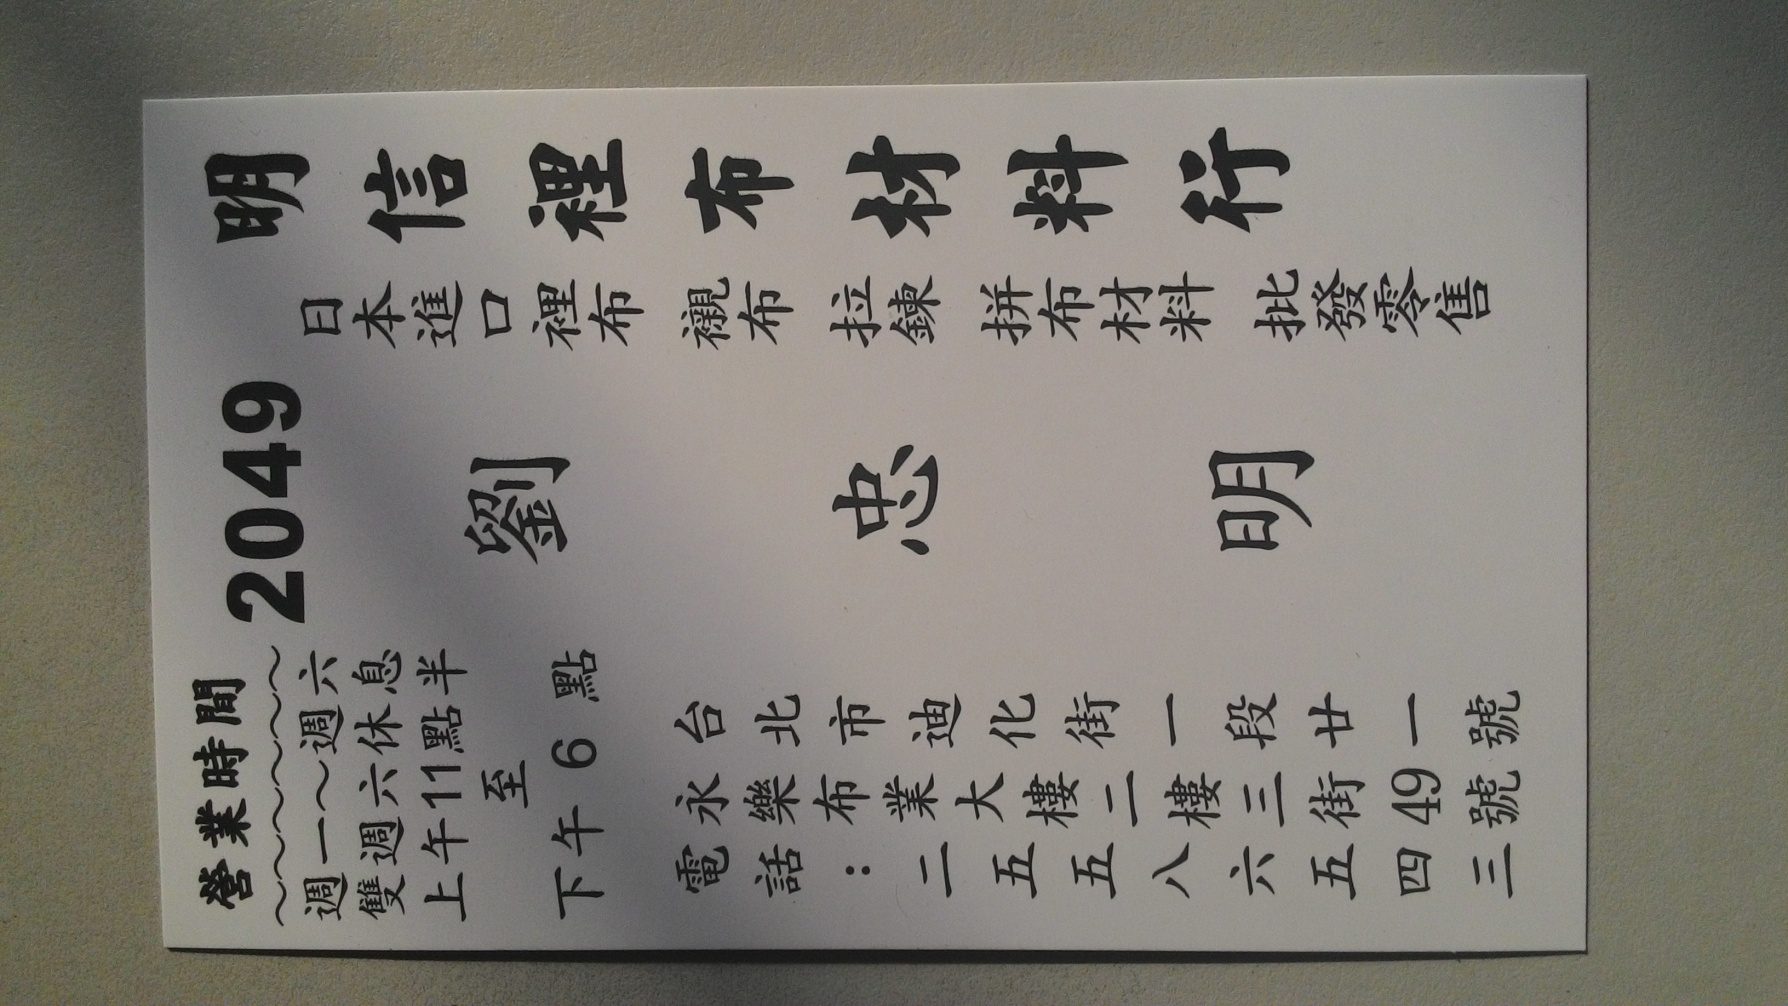 明信裡布材料行
日本進口裡布 襯布 拉鍊 拼布材料 批發零售
2049
劉忠明
營業時間
週一～週六
雙週六休息
上午11點半
至
下午 6 點
台北市迪化街一段廿一號
永樂布業大樓二樓三街49號
電話：二五五八六五四三